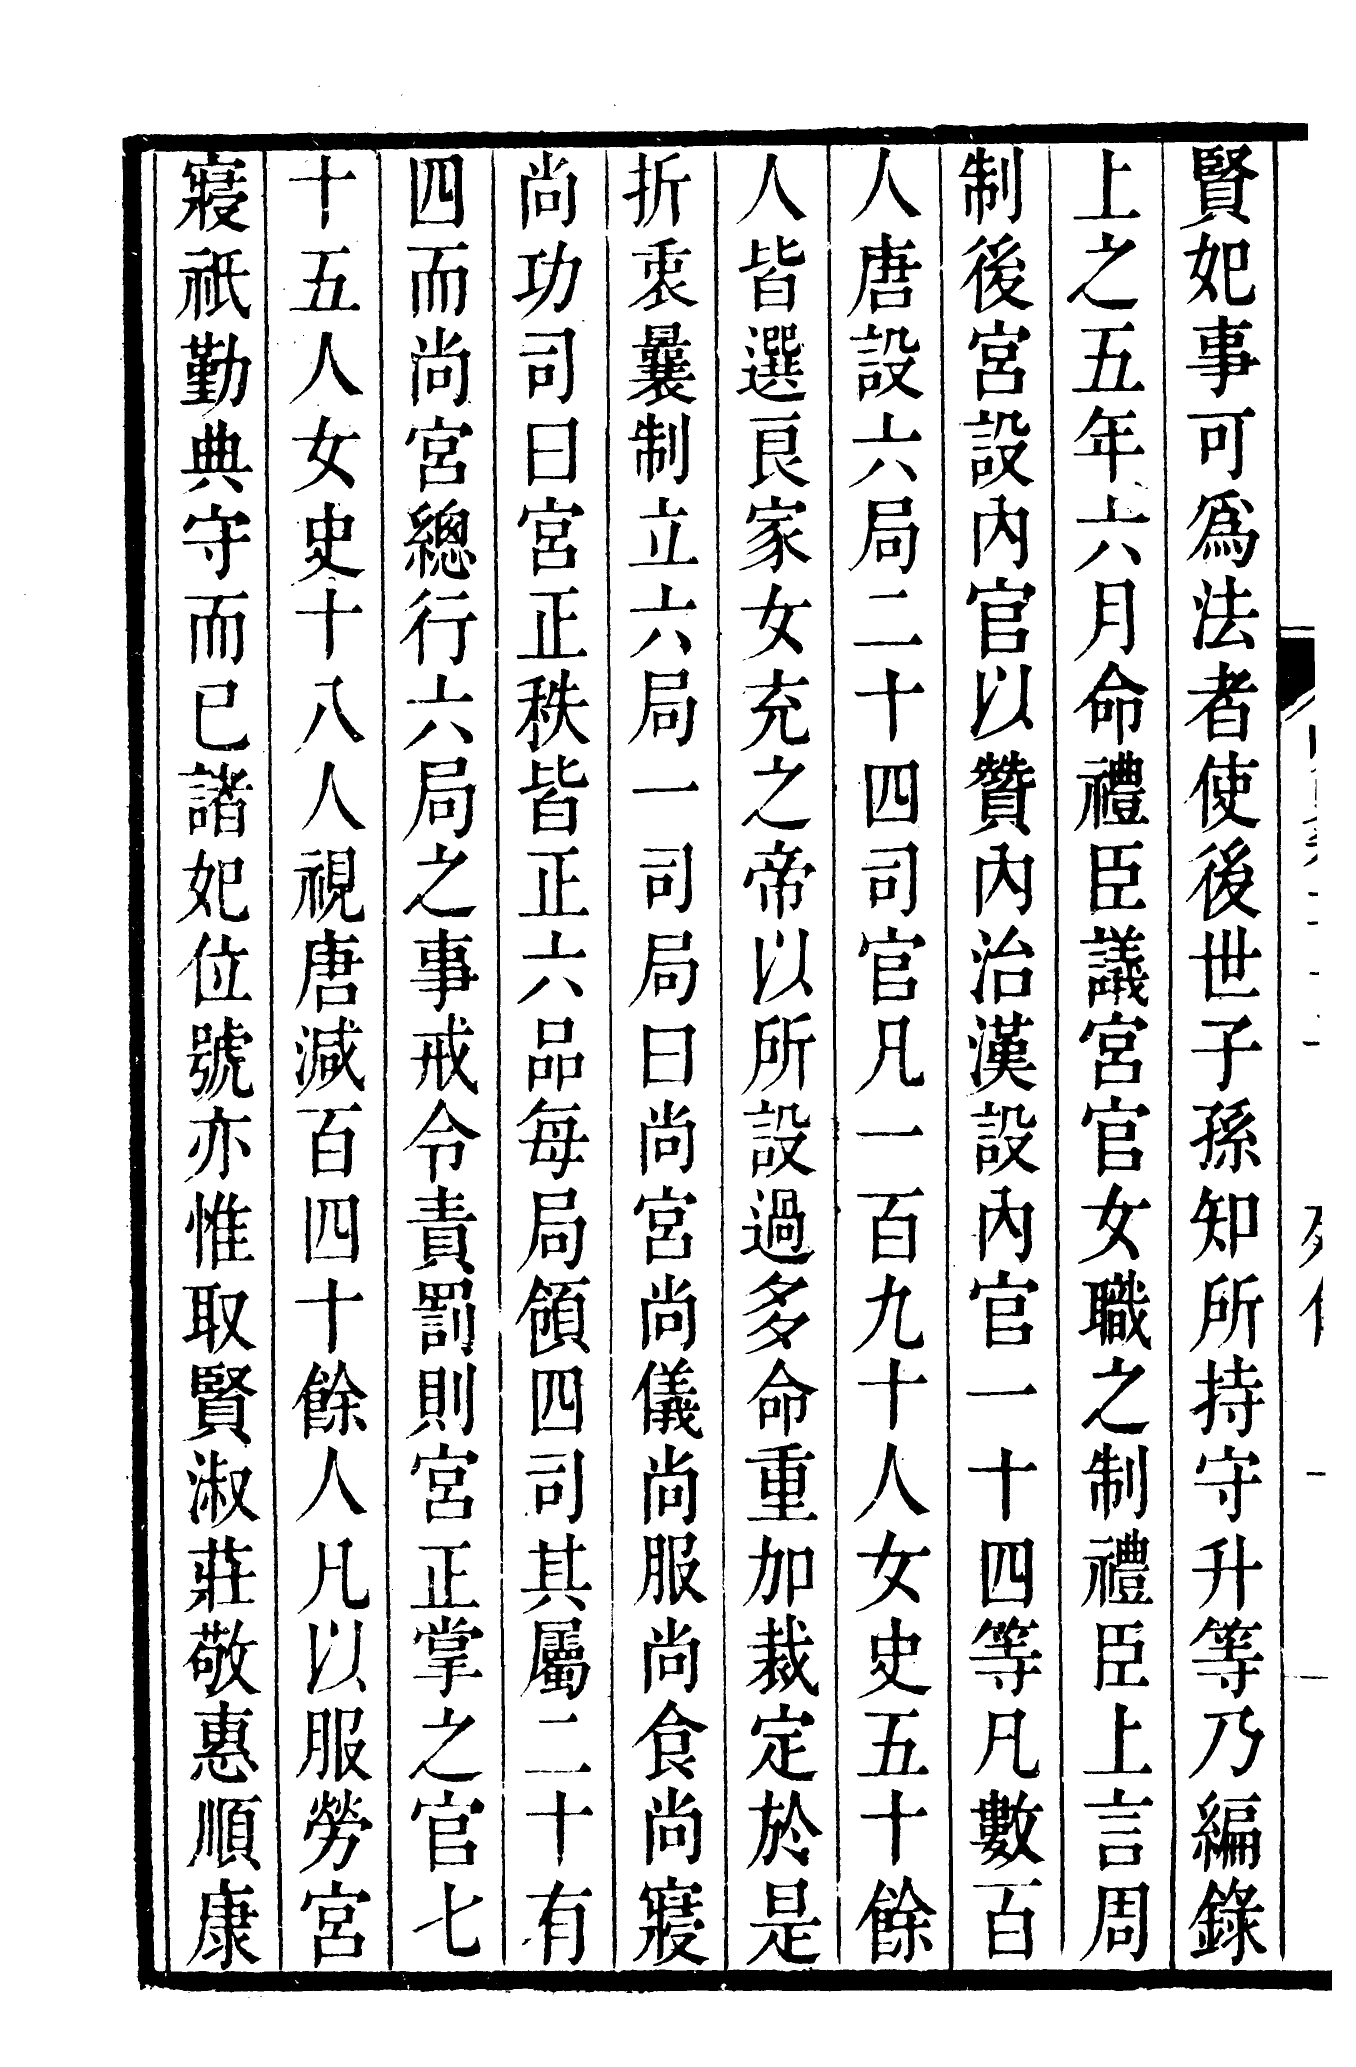 賢妃事可爲法者使後世子孫知所持守升等乃編錄
上之五年六月命禮臣議宮官女職之制禮臣上言周
制後宮設內官以贊內治漢設內官一十四等凡數百
人唐設六局二十四司官凡一百九十人女史五十餘
人皆選良家女充之帝以所設過多命重加裁定於是
折衷曩制立六局一司局曰尚宮尚儀尚服尚食尚寢
尚功司曰宮正秩皆正六品每局領四司其屬二十有
四而尚宮總行六局之事戒令責罰則宮正掌之官七
十五人女史十八人視唐減百四十餘人凡以服勞宮
寢祗勤典守而已諸妃位號亦惟取賢淑莊敬惠順康